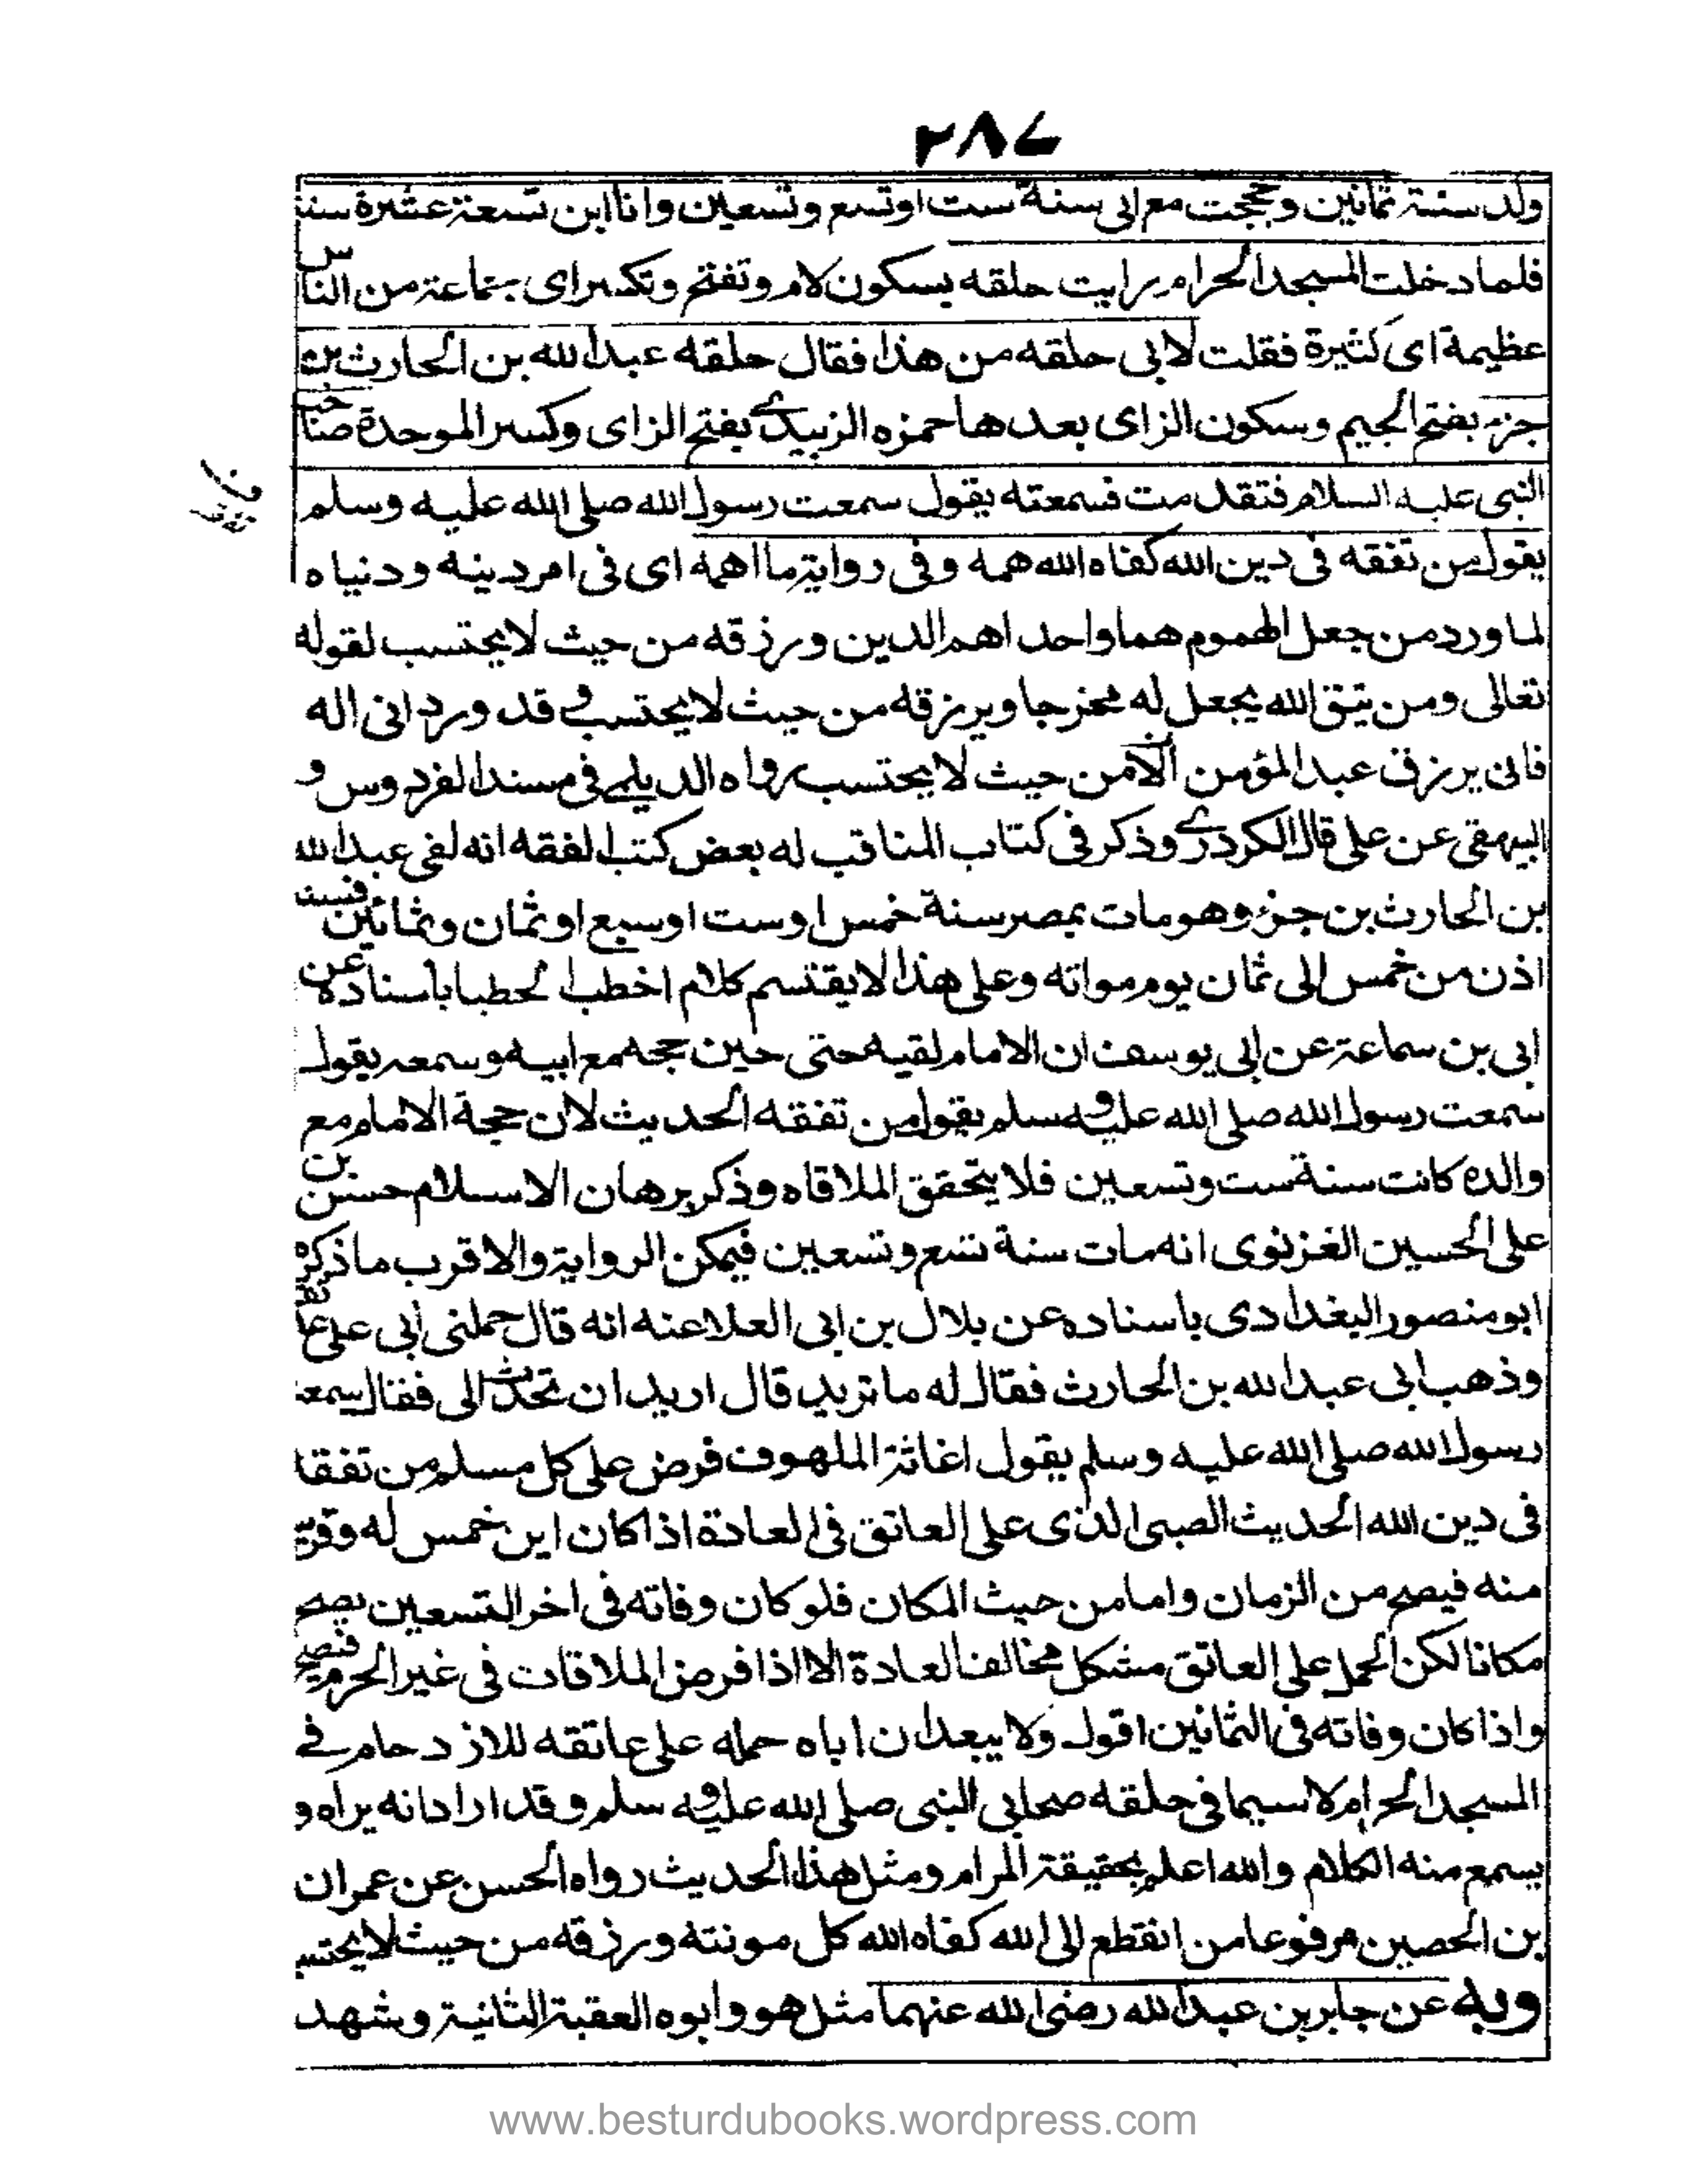 ٢٨٧
ولد سنة ثمانين وحججت مع ابى سنة ست اوتسع وتسعين وانا ابن تسعة عشرة سنة
فلما دخلت المسجد الحرام رايت حلقه بسكون لام وتفتح وتكسر اى جماعة من الناس
عظيمة اى كثيرة فقلت لابى حلقه من هذا فقال حلقه عبد الله بن الحارث بن
جزء بفتح الجيم وسكون الزاى بعدها حمزه الزبيدى بفتح الزاى وكسر الموحدة صاحب
النبى عليه السلام فتقدمت فسمعته يقول سمعت رسول الله صلى الله عليه وسلم
يقول من تفقه فى دين الله كفاه الله همه وفى رواية ما اهمه اى فى امر دينه ودنياه
لما ورد من جعل الهموم هما واحد اهم الدين ورزقه من حيث لا يحتسب لقوله
تعالى ومن يتق الله يجعل له مخرجا ويرزقه من حيث لا يحتسب وقد ورد انى اله
فانى يرزق عبد المؤمن الا من حيث لا يحتسب رواه الديلمى فى مسند الفردوس و
البيهقى عن على قال الكردرى وذكر فى كتاب المناقب له بعض كتب الفقه انه لقى عبد الله
بن الحارث بن جزء وهو مات بمصر سنة خمس اوست اوسبع اوثمان وثمانين فسنه
اذن من خمس الى ثمان يوم مواته وعلى هذا لا يقتسم كلام اخطب لحطبا باسناده عن
ابى بن سماعة عن ابى يوسف ان الامام لقيه حتى حين حجه مع ابيه وسمعه يقول
سمعت رسول الله صلى الله عليه وسلم يقول من تفقه الحديث لان حجة الامام مع
والده كانت سنة ست وتسعين فلا يتحقق الملاقاه وذكر برهان الاسلام حسن بن
على الحسين الغزنوى انه مات سنة تسع وتسعين فيمكن الرواية والاقرب ما ذكره
ابو منصور البغدادى باسناده عن بلال بن ابى العلا عنه انه قال حملنى ابى على عاتقه
وذهب ابى عبد الله بن الحارث فقال له ما تريد قال اريد ان تحدث الى فقال سمعت
رسول الله صلى الله عليه وسلم يقول اغاثة الملهوف فرض على كل مسلم من تفقا
فى دين الله الحديث الصبى الذى على العاتق فى العادة اذا كان ابن خمس له وقرب
منه فيصح من الزمان واما من حيث المكان فلو كان وفاته فى اخر التسعين يصح
مكانا لكن الحمل على العاتق مشكل مخالف العادة الا اذا فرض الملاقات فى غير الحرم فتصح
واذا كان وفاته فى الثمانين اقول ولا يبعد ان اباه حمله على عاتقه للازدحام فى
المسجد الحرام لا سيما فى حلقه صحابى النبى صلى الله عليه وسلم وقد ارادانه يراه و
يسمع منه الكلام والله اعلم بحقيقة المرام ومثل هذا الحديث رواه الحسن عن عمران
بن الحصين مرفوعا من انقطع الى الله كفاه الله كل مونته ورزقه من حيث لا يحتسب
وبه عن جابر بن عبد الله رضى الله عنهما مثل هو وابوه العقبة الثانية وشهد
www.besturdubooks.wordpress.com